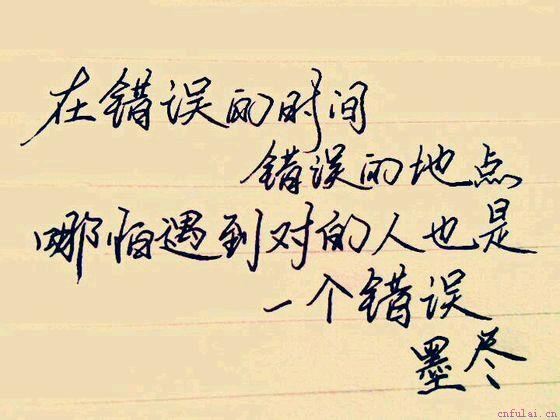 在错误的时间
错误的地点
哪怕遇到对的人也是
一个错误
墨尽
cnfulai.cn